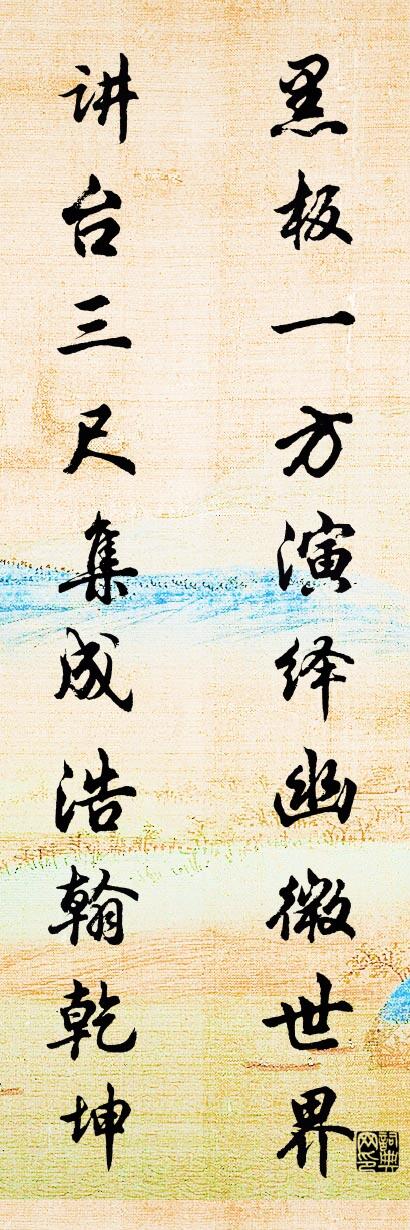 黑板一方演绎幽微世界
讲台三尺集成浩翰乾坤
词典网印